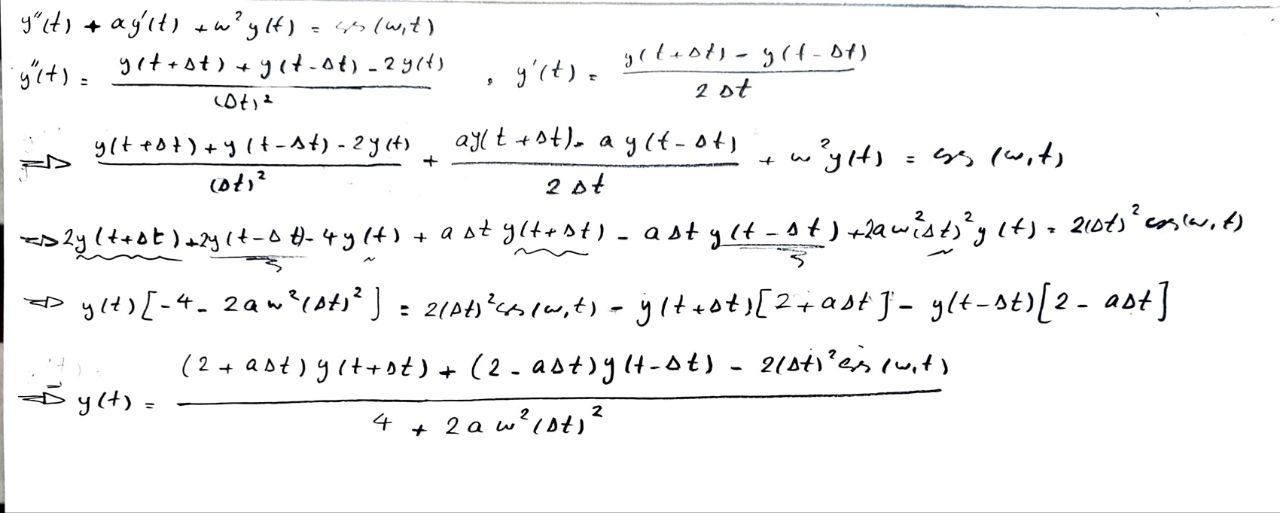 y''(t) + ay'(t) + w²y(t) = cos(w,t)
y''(t) = (y(t+Δt) + y(t-Δt) - 2y(t)) / (Δt)² , y'(t) = (y(t+Δt) - y(t-Δt)) / 2Δt
⇒ (y(t+Δt) + y(t-Δt) - 2y(t)) / (Δt)² + (ay(t+Δt) - ay(t-Δt)) / 2Δt + w²y(t) = cos(w,t)
⇒ 2y(t+Δt) + 2y(t-Δt) - 4y(t) + aΔt y(t+Δt) - aΔt y(t-Δt) + 2aw²(Δt)²y(t) = 2(Δt)²cos(w,t)
⇒ y(t)[-4 - 2aw²(Δt)²] = 2(Δt)²cos(w,t) - y(t+Δt)[2+aΔt] - y(t-Δt)[2-aΔt]
⇒ y(t) = ((2+aΔt)y(t+Δt) + (2-aΔt)y(t-Δt) - 2(Δt)²cos(w,t)) / (4 + 2aw²(Δt)²)